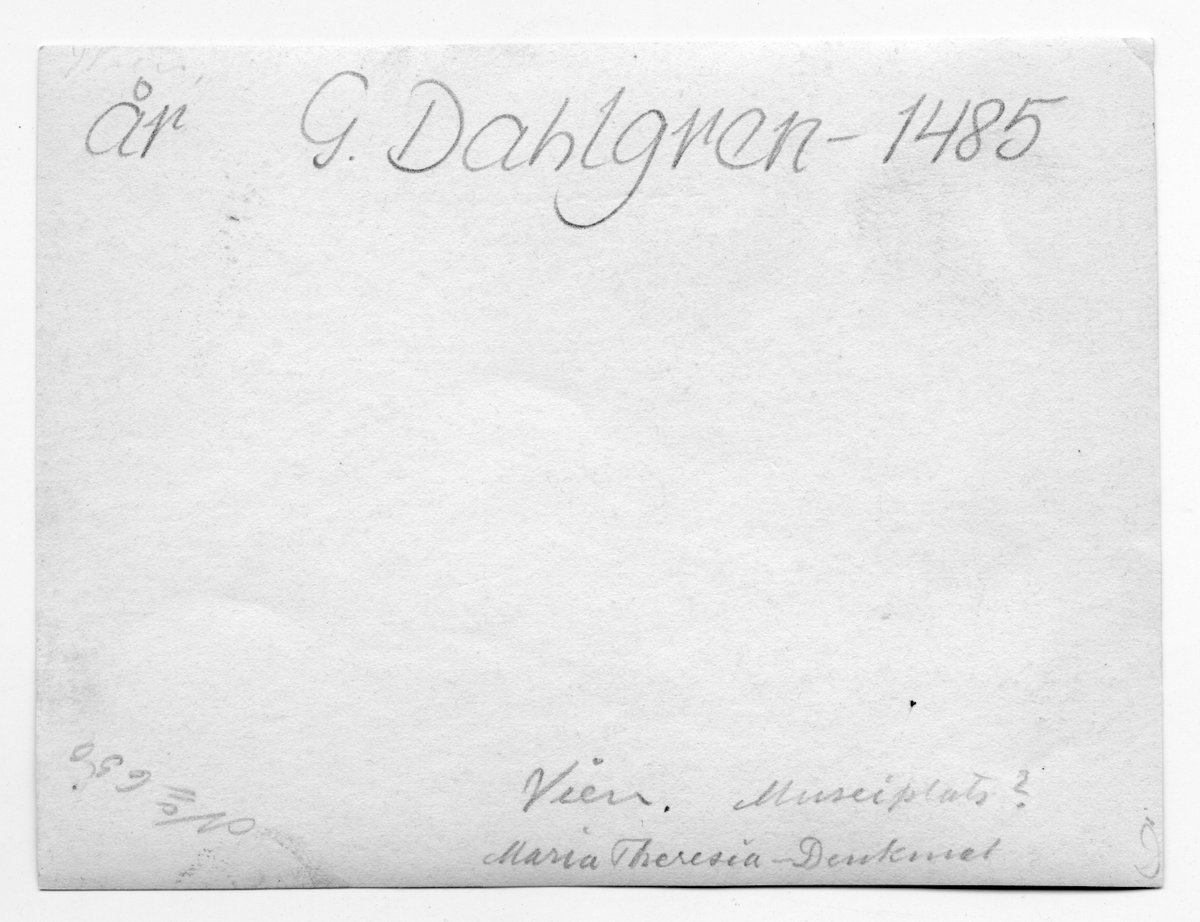 år G. Dahlgren - 1485
Vien. Museiplats?
Maria Theresia-Denkmal